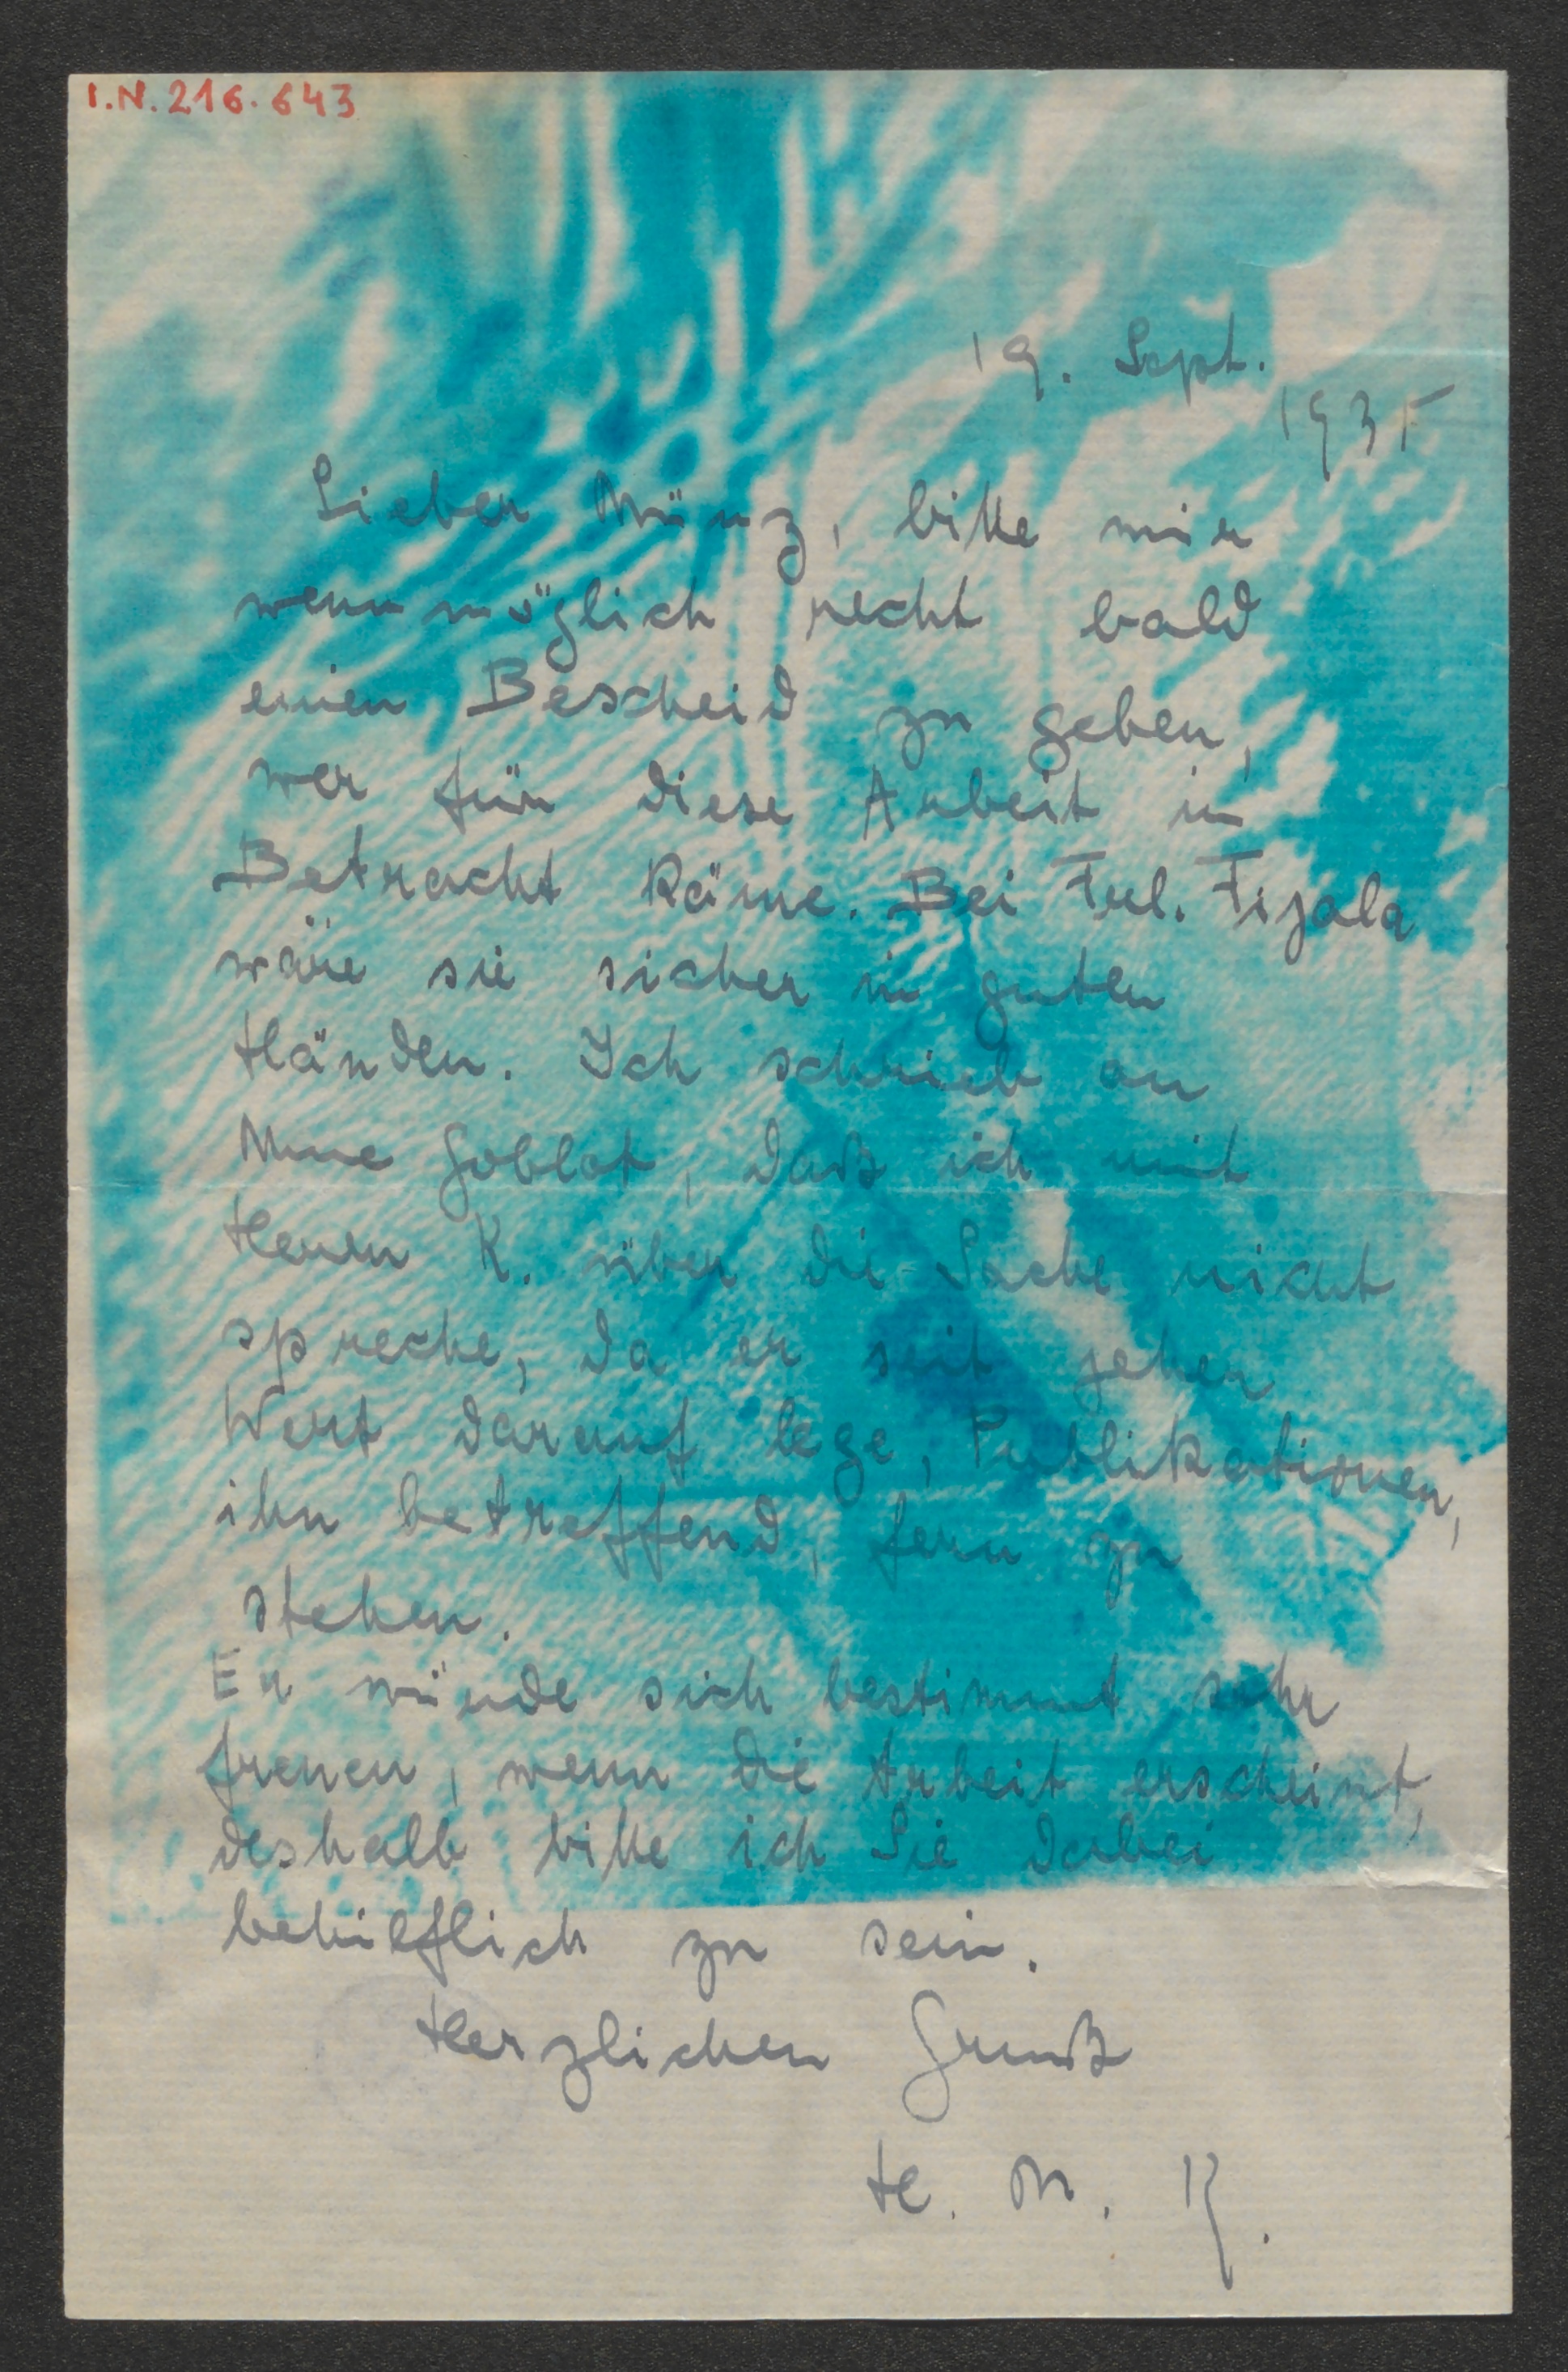 I.N. 216.643
19. Sept.
1935
Lieber Münz, bitte mir
wenn möglich recht bald
einen Bescheid zu geben,
wer für diese Arbeit in
Betracht käme. Bei Frl. Fijala
wäre sie sicher in guten
Händen. Ich schrieb an
Mme Goblot, daß ich mit
Herrn K. über die Sache nicht
spreche, da er seit jeher
Wert darauf lege, Publikationen,
ihn betreffend, fern zu
stehen.
Er würde sich bestimmt sehr
freuen, wenn die Arbeit erscheint,
deshalb bitte ich Sie dabei
behilflich zu sein.
Herzlichen Gruß
H. M. K.